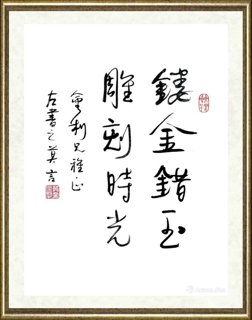 鏤金錯玉
雕刻時光
會利兄雅正
左書之莫言